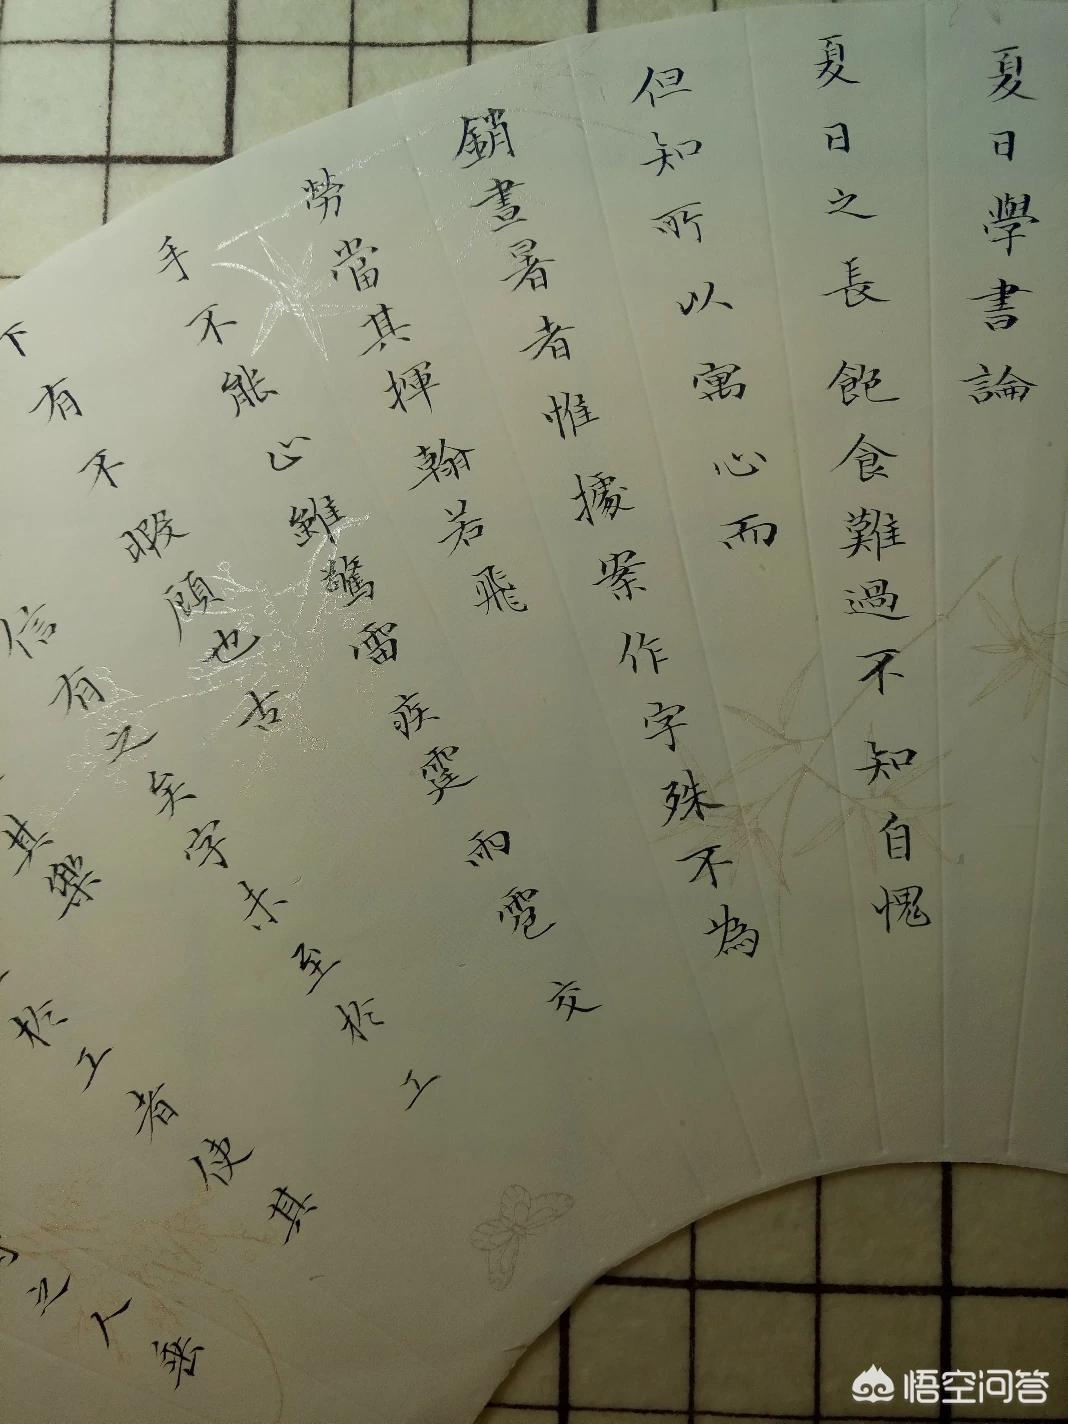 夏日學書論
夏日之長飽食難過不知自愧
但知所以寓心而
銷晝暑者惟據案作字殊不為
勞當其揮翰若飛
手不能止雖驚雷疾霆雨雹交
下有不暇顧也古
信有之矣字未至於工
其樂
於工者使其
之人垂
悟空问答